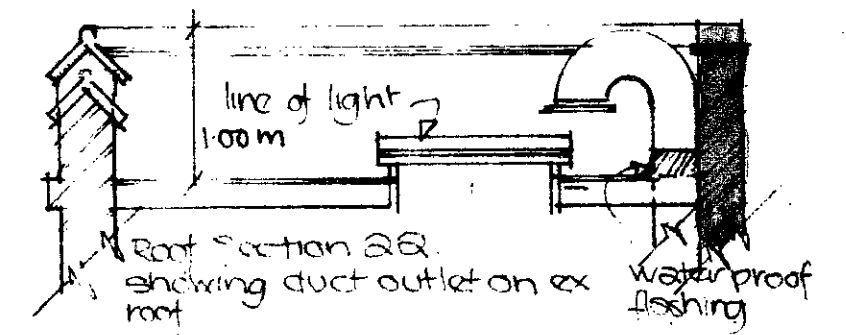 line of light
1.00m
Roof Section 22.
showing duct outlet on ex
roof
waterproof
flashing